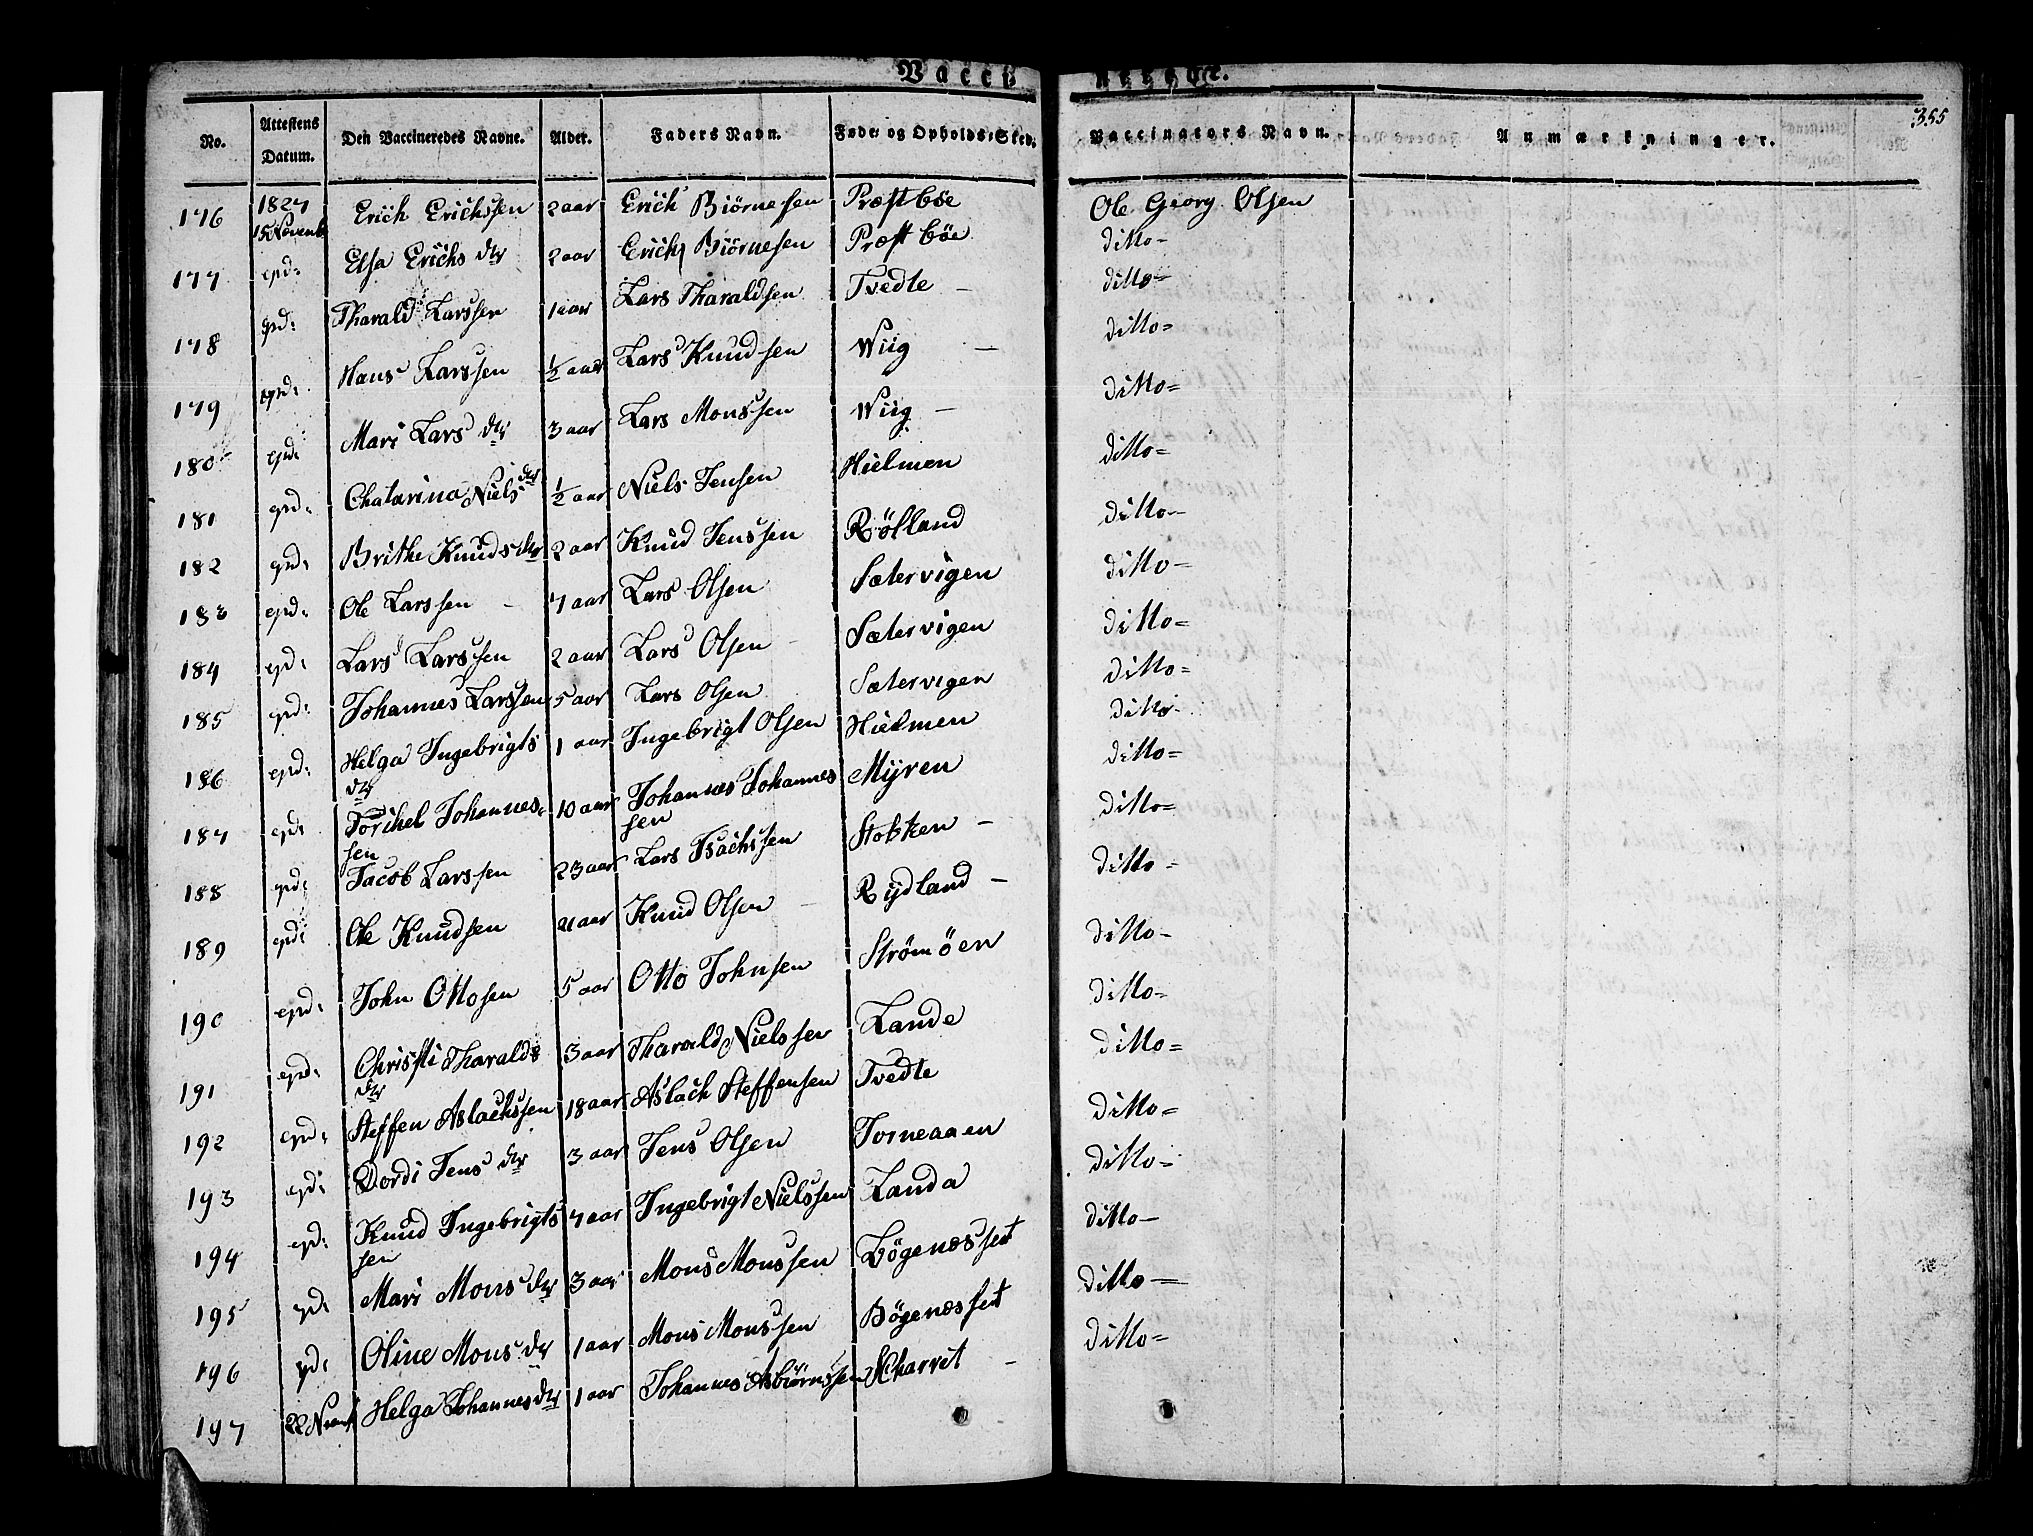 Vacci
355
No. Attestens Datum. Den Vaccineredes Navne. Alder. Faders Navn. Føde- og Opholds-Sted. Vaccinators Navn. Anmærkninger.
176 1827 15 Novemb Erich Erichssen 2 aar Erich Biörnesen Præstböe Ole Georg Olsen
177 Elsa Erichs dtr 2 aar Erich Biörnesen Præstböe ditto-
178 Tharald Larssen 1 aar Lars Tharaldsen Tvedte - ditto=
179 Hans Larssen ½ aar Lars Knudsen Wiig - ditto=
180 Mari Lars dtr 3 aar Lars Monssen Wiig - ditto=
181 Chatarina Niels dtr ½ aar Niels Jensen Hielmen ditto=
182 Brithe Knuds dtr 2 aar Knud Jenssen Rölland ditto-
183 Ole Larssen - 7 aar Lars Olsen Sætervigen ditto-
184 Lars Larssen 2 aar Lars Olsen - Sætervigen ditto=
185 Johannes Larssen 5 aar Lars Olsen Sætervigen ditto=
186 Helga Ingebrigts dtr 1 aar Ingebrigt Olsen Hielmen ditto-
187 Torchel Johannes-sen 10 aar Johannes Johannes sen Myren ditto=
188 Jacob Larssen 23 aar Lars Isachssen Stokken - ditto=
189 Ole Knudsen Knud Olsen - Rydland - ditto=
190 John Ottosen 5 aar Otto Johnsen Strömöen ditto-
191 Christi Tharalds dtr 3 aar Tharald Nielssen Lande ditto-
192 Steffen Aslachssen 18 aar Aslach Steffensen Tvedte ditto=
193 Dordi Jens dtr 3 aar Jens Olsen Torneaaen ditto=
194 Knud Ingebrigts sen 7 aar Ingebrigt Nielssen Landa ditto-
195 Mari Mons dtr 3 aar Mons Monssen Bögenæsset ditto-
196 Oline Mons dtr 1 aar Mons Monssen Bögenæsset ditto-
197 22 Johannes dtr Helga 1 aar Johannes Asbiörnssen Scharvet - ditto=